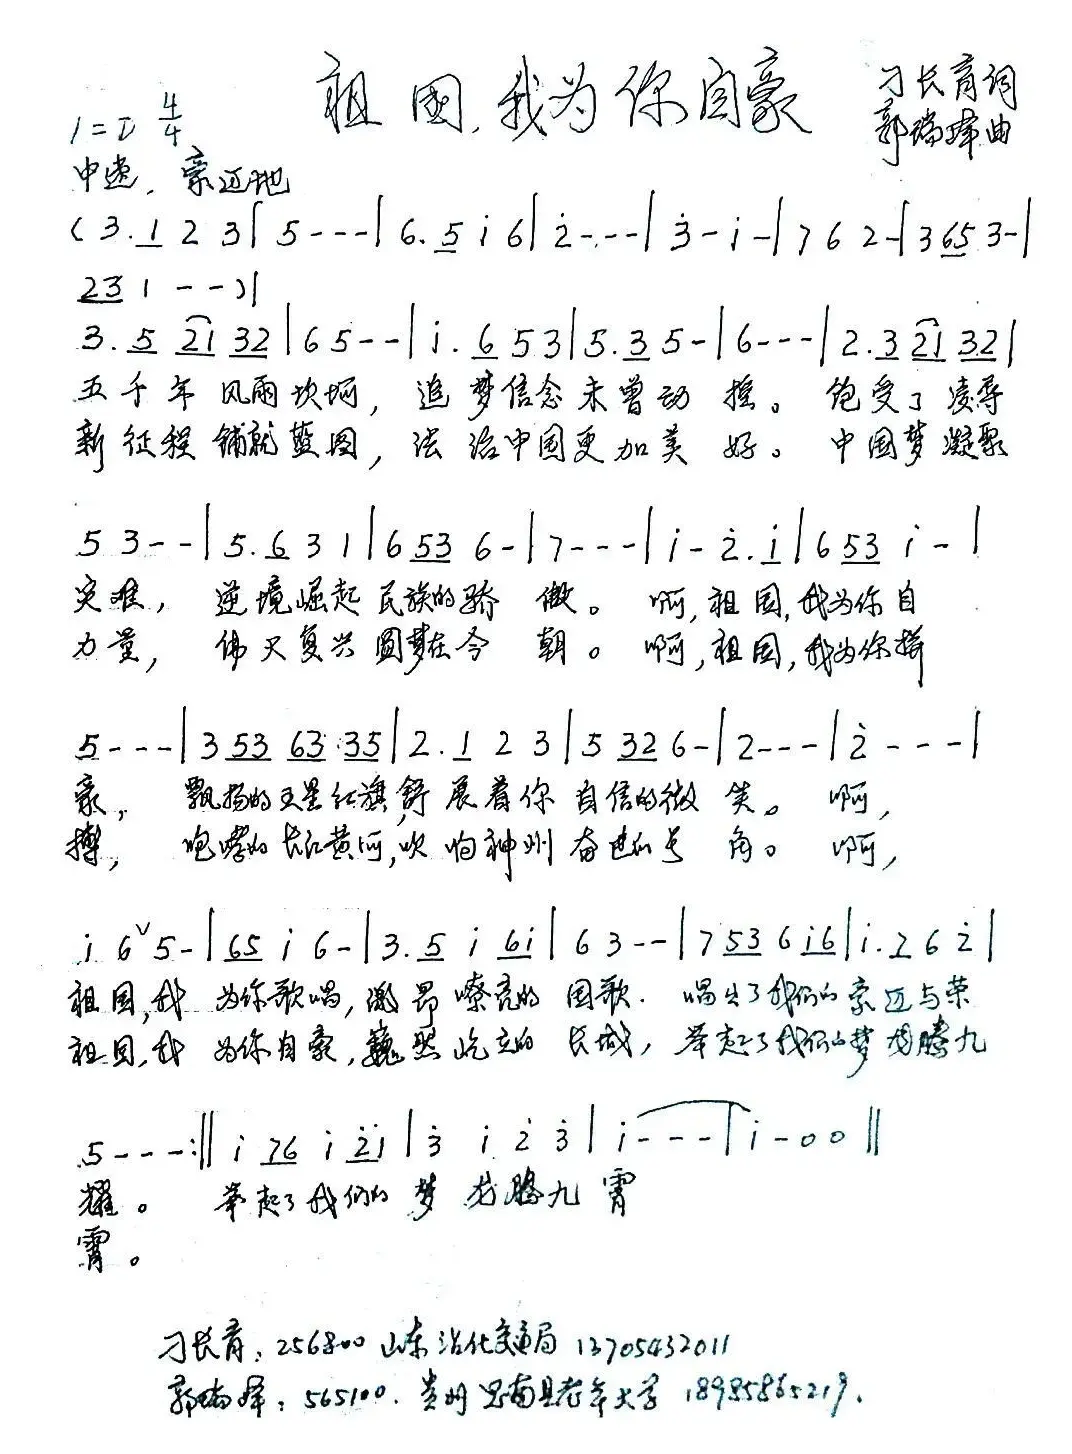 祖国,我为你自豪
刁长育词
1=D 4/4
郭瑞峰曲
中速,豪迈地
(3.1 2 3|5---|6.5 i 6|2̇---|3̇-i-|7 6 2-|3 65 3-|
23 1 --)|
3.5 21 32|6 5--|i.6 5 3|5.3 5-|6---|2.3 21 32|
五千年风雨坎坷,追梦信念未曾动摇。饱受了凌辱
新征程铺就蓝图,法治中国更加美好。中国梦凝聚
5 3--|5.6 3 1|6 53 6-|7---|i-2̇.i|6 53 i-|
灾难,逆境崛起民族的骄傲。啊,祖国,我为你自
力量,伟大复兴圆梦在今朝。啊,祖国,我为你拼
5---|3 53 63 35|2.1 2 3|5 32 6-|2---|2̇----|
豪,飘扬的五星红旗,舒展着你自信的微笑。啊,
搏,咆哮的长江黄河,吹响神州奋进的号角。啊,
i 6ˇ5-|65 i 6-|3.5 i 6i|6 3--|7 53 6 i6|i.7 6 2̇|
祖国,我为你歌唱,激昂嘹亮的国歌.唱出了我们的豪迈与荣
祖国,我为你自豪,巍然屹立的长城,举起了我们的梦龙腾九
5---:‖i 76 i 2̇i|3̇ i 2̇ 3̇|i---|i-00‖
耀。举起了我们的梦龙腾九霄
霄。
刁长育:256800 山东沾化交通局 13705432011
郭瑞峰:565100.贵州思南县老年大学 18985865219.